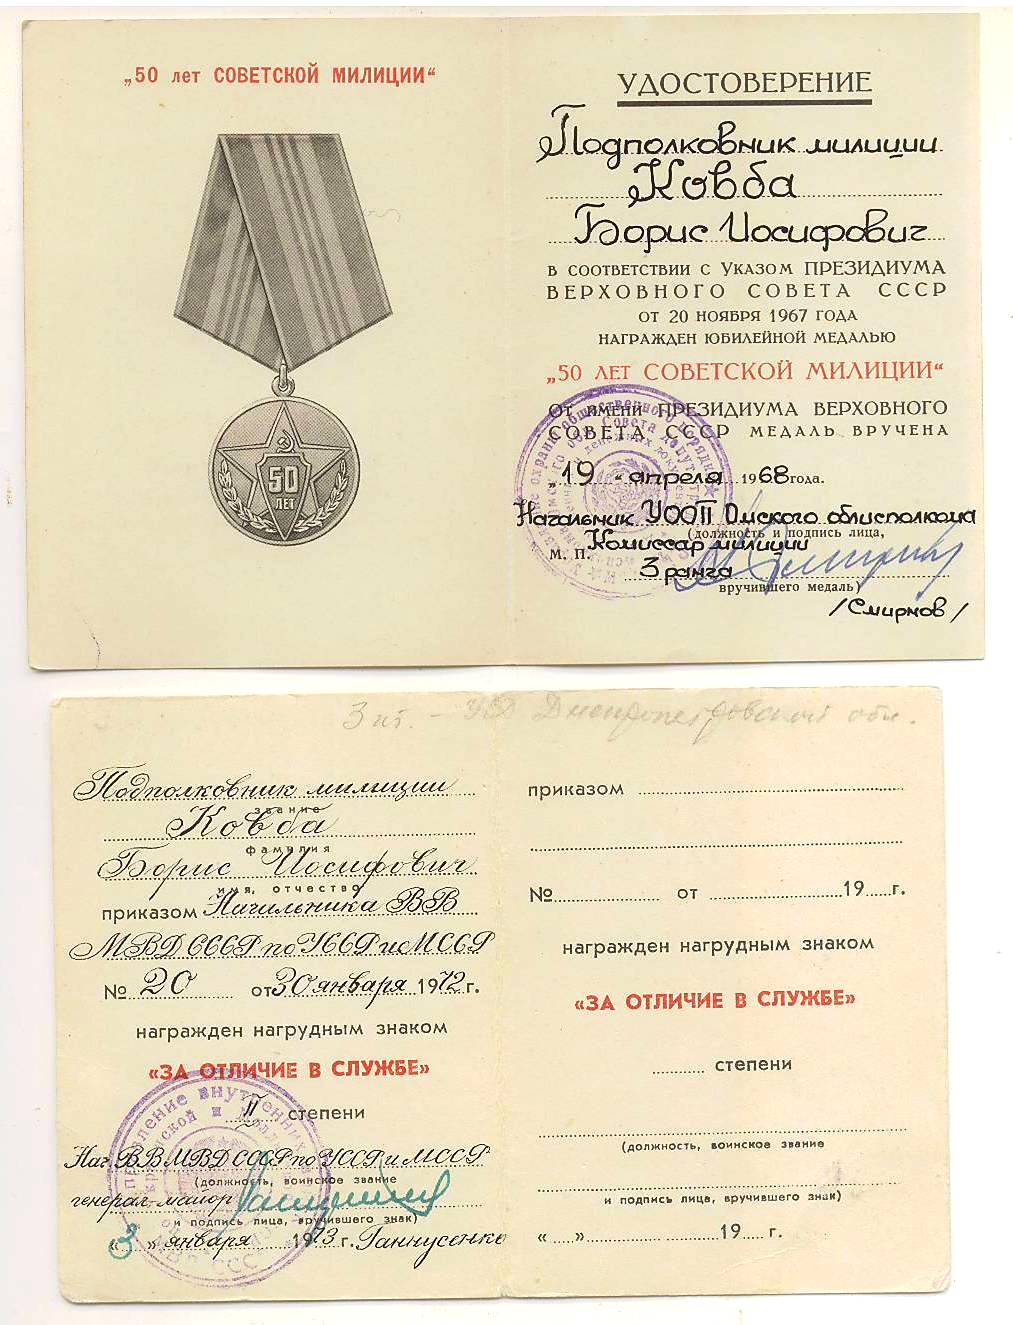 „50 лет СОВЕТСКОЙ МИЛИЦИИ“
50
ЛЕТ
УДОСТОВЕРЕНИЕ
Подполковник милиции
Ковба
Борис Иосифович
В СООТВЕТСТВИИ С УКАЗОМ ПРЕЗИДИУМА
ВЕРХОВНОГО СОВЕТА СССР
ОТ 20 НОЯБРЯ 1967 ГОДА
НАГРАЖДЕН ЮБИЛЕЙНОЙ МЕДАЛЬЮ
„50 ЛЕТ СОВЕТСКОЙ МИЛИЦИИ“
ОТ ИМЕНИ ПРЕЗИДИУМА ВЕРХОВНОГО
СОВЕТА СССР МЕДАЛЬ ВРУЧЕНА
„19“ апреля 1968 года.
Начальник УООП Омского облисполкома
(должность и подпись лица,
Комиссар милиции
М. П.
3 ранга
вручившего медаль)
/Смирнов/
3 шт. - УВД Днепропетровской обл.
Подполковник милиции
звание
Ковба
фамилия
Борис Иосифович
имя, отчество
приказом Начальника ВВ
МВД СССР по УССР и МССР
№ 20 от 30 января 1972 г.
награжден нагрудным знаком
«ЗА ОТЛИЧИЕ В СЛУЖБЕ»
II степени
Нач ВВ МВД СССР по УССР и МССР
(должность, воинское звание
генерал-майор
и подпись лица, вручившего знак)
« 3 » января 1973 г. Ганнусенко
приказом
№ от 19 г.
награжден нагрудным знаком
«ЗА ОТЛИЧИЕ В СЛУЖБЕ»
степени
(должность, воинское звание
и подпись лица, вручившего знак)
« » 19 г.